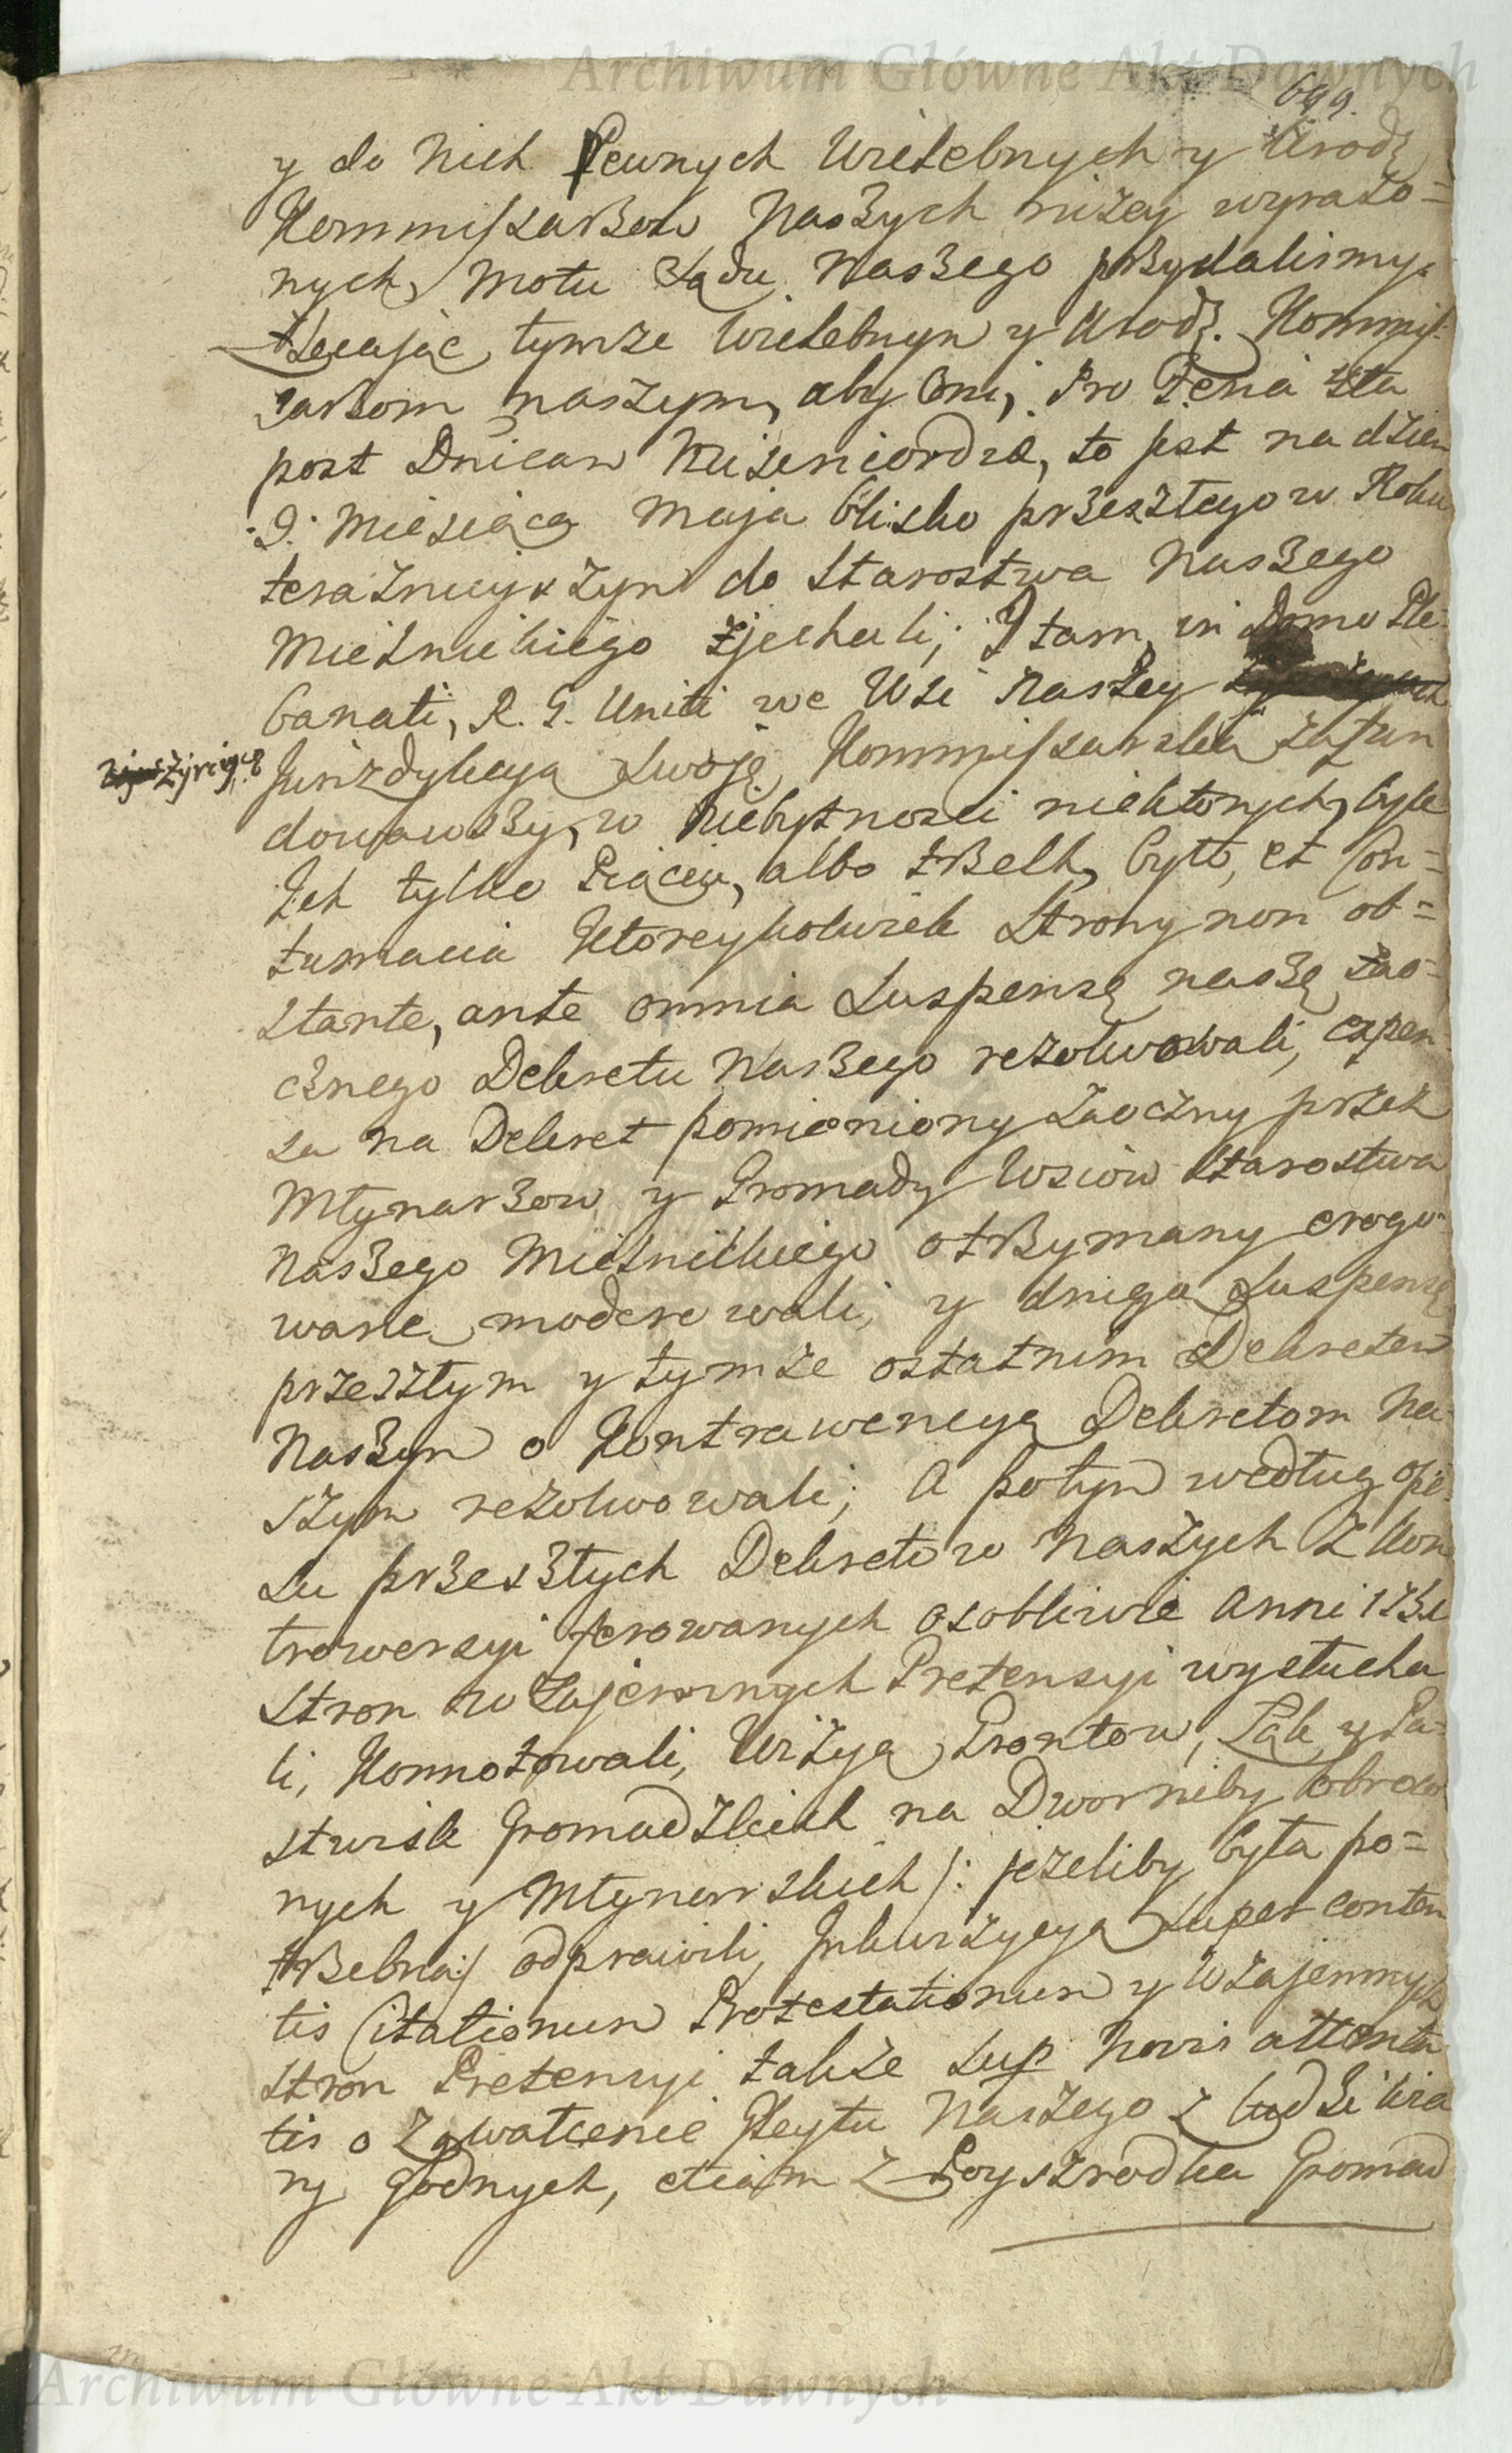 Archiwum Główne Akt Dawnych
699.
y do Nich Pewnych Wielebnych y Urodz
Kommissarzow Naszych niżey wyrażo=
nych, Motu Sądu Naszego przydalismy,
zlecając tymże Wielebnym y Urodz. Kommis-
sarzom naszym, aby Oni, Pro Feria 4ta
post Dnicam Misericordiæ, to jest na dzien
9. Miesiąca Maja blisko przeszłego w Roku
teraznieyszym do Starostwa Naszego
Mielnickiego zjechali; I tam, in Domo Ple-
banali, R. G. Uniti we Wsi Naszey
Zyrcicze
Jurizdykcyą Swoję Kommissarską zafun
dowawszy, w Niebytnosci niektorych, byle
Ich tylko Piąciu, albo trzech, było, et Con=
tumacia Ktoreykolwiek Strony non ob=
stante, ante omnia Suspensę naszę zao=
cznego Dekretu Naszego rezolwowali, expen
sa na Dekret pomieniony zaoczny przez
Młynarzow y Gromady Wsiow Starostwa
Naszego Mielnickiego otrzymany erogo-
wane moderowali, y drugą Suspensę
przeszłym y tymże ostatnim Dekretem
Naszym o Kontrawencyą Dekretom Na-
szym rezolwowali; A potym według opi-
su przeszłych Dekretow Naszych z Kon
trowersyi ferowanych osobliwie Anni
Stron wzajemnych Pretensyi wysłucha
li, Konnotowali, Wizyą Grontow, Łąk y Pa-
stwisk Gromadzkich na Dworniby obroco
nych y Młynarskich /: jeżeliby była po=
trzebna:/ odprawili, Inkwizycyą Super conten
tis Citationum Protestationum y Wzajemnych
Stron Pretensyi także Sup Novis attenta
tis o zgwałcenie Gleytu Naszego z ludzi wia
ry godnych, etiam z Poyszrodka Gromad
Archiwum Główne Akt Dawnych